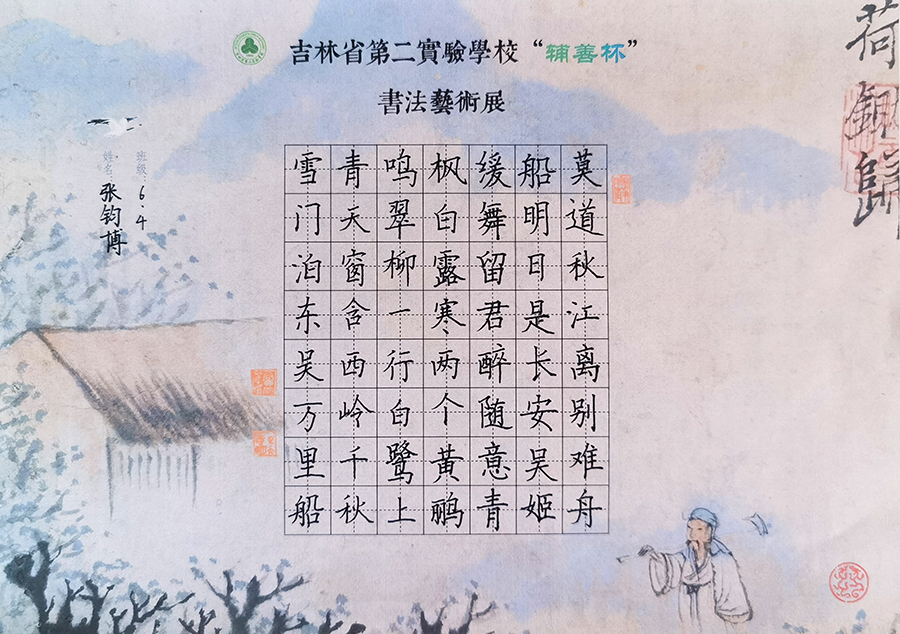 吉林省第二實驗學校“辅善杯”
書法藝術展
荷
莫道秋江离别难舟
船明日是长安吴姬
缓舞留君醉随意青
枫白露寒、两个黄鹂
鸣翠柳一行白鹭上
青天窗含西岭千秋
雪门泊东吴万里船
班級：6.4
姓名：张钧博